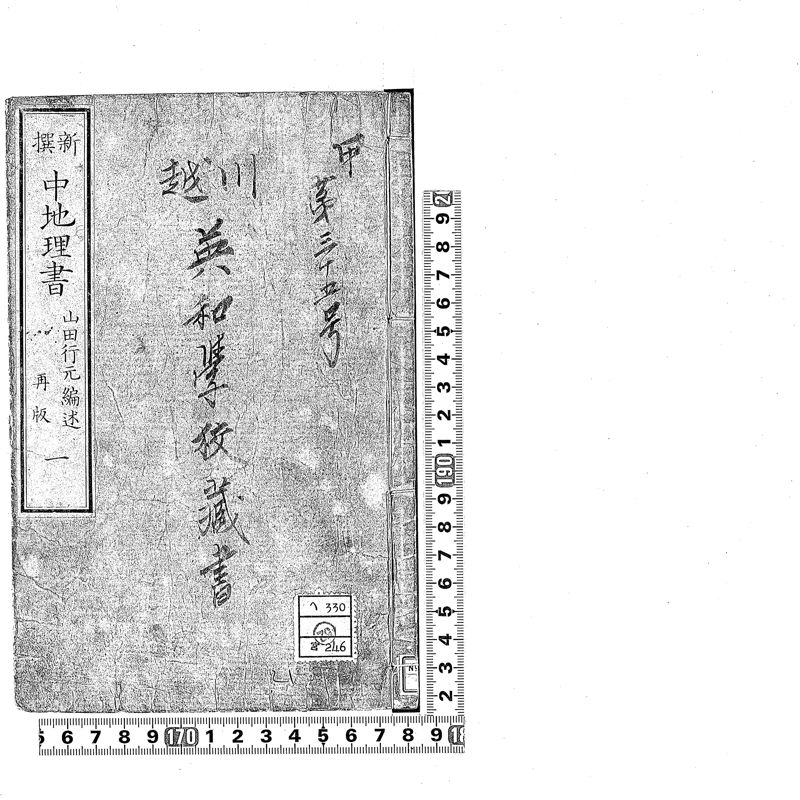 甲
第三十五号
川越
英和學校藏書
新撰
中地理書
山田行元編述
再版
一
ヘ 330
246
No
2
9
8
7
6
5
4
3
2
1
190
9
8
7
6
5
4
3
2
5 6 7 8 9 170 1 2 3 4 5 6 7 8 9 18